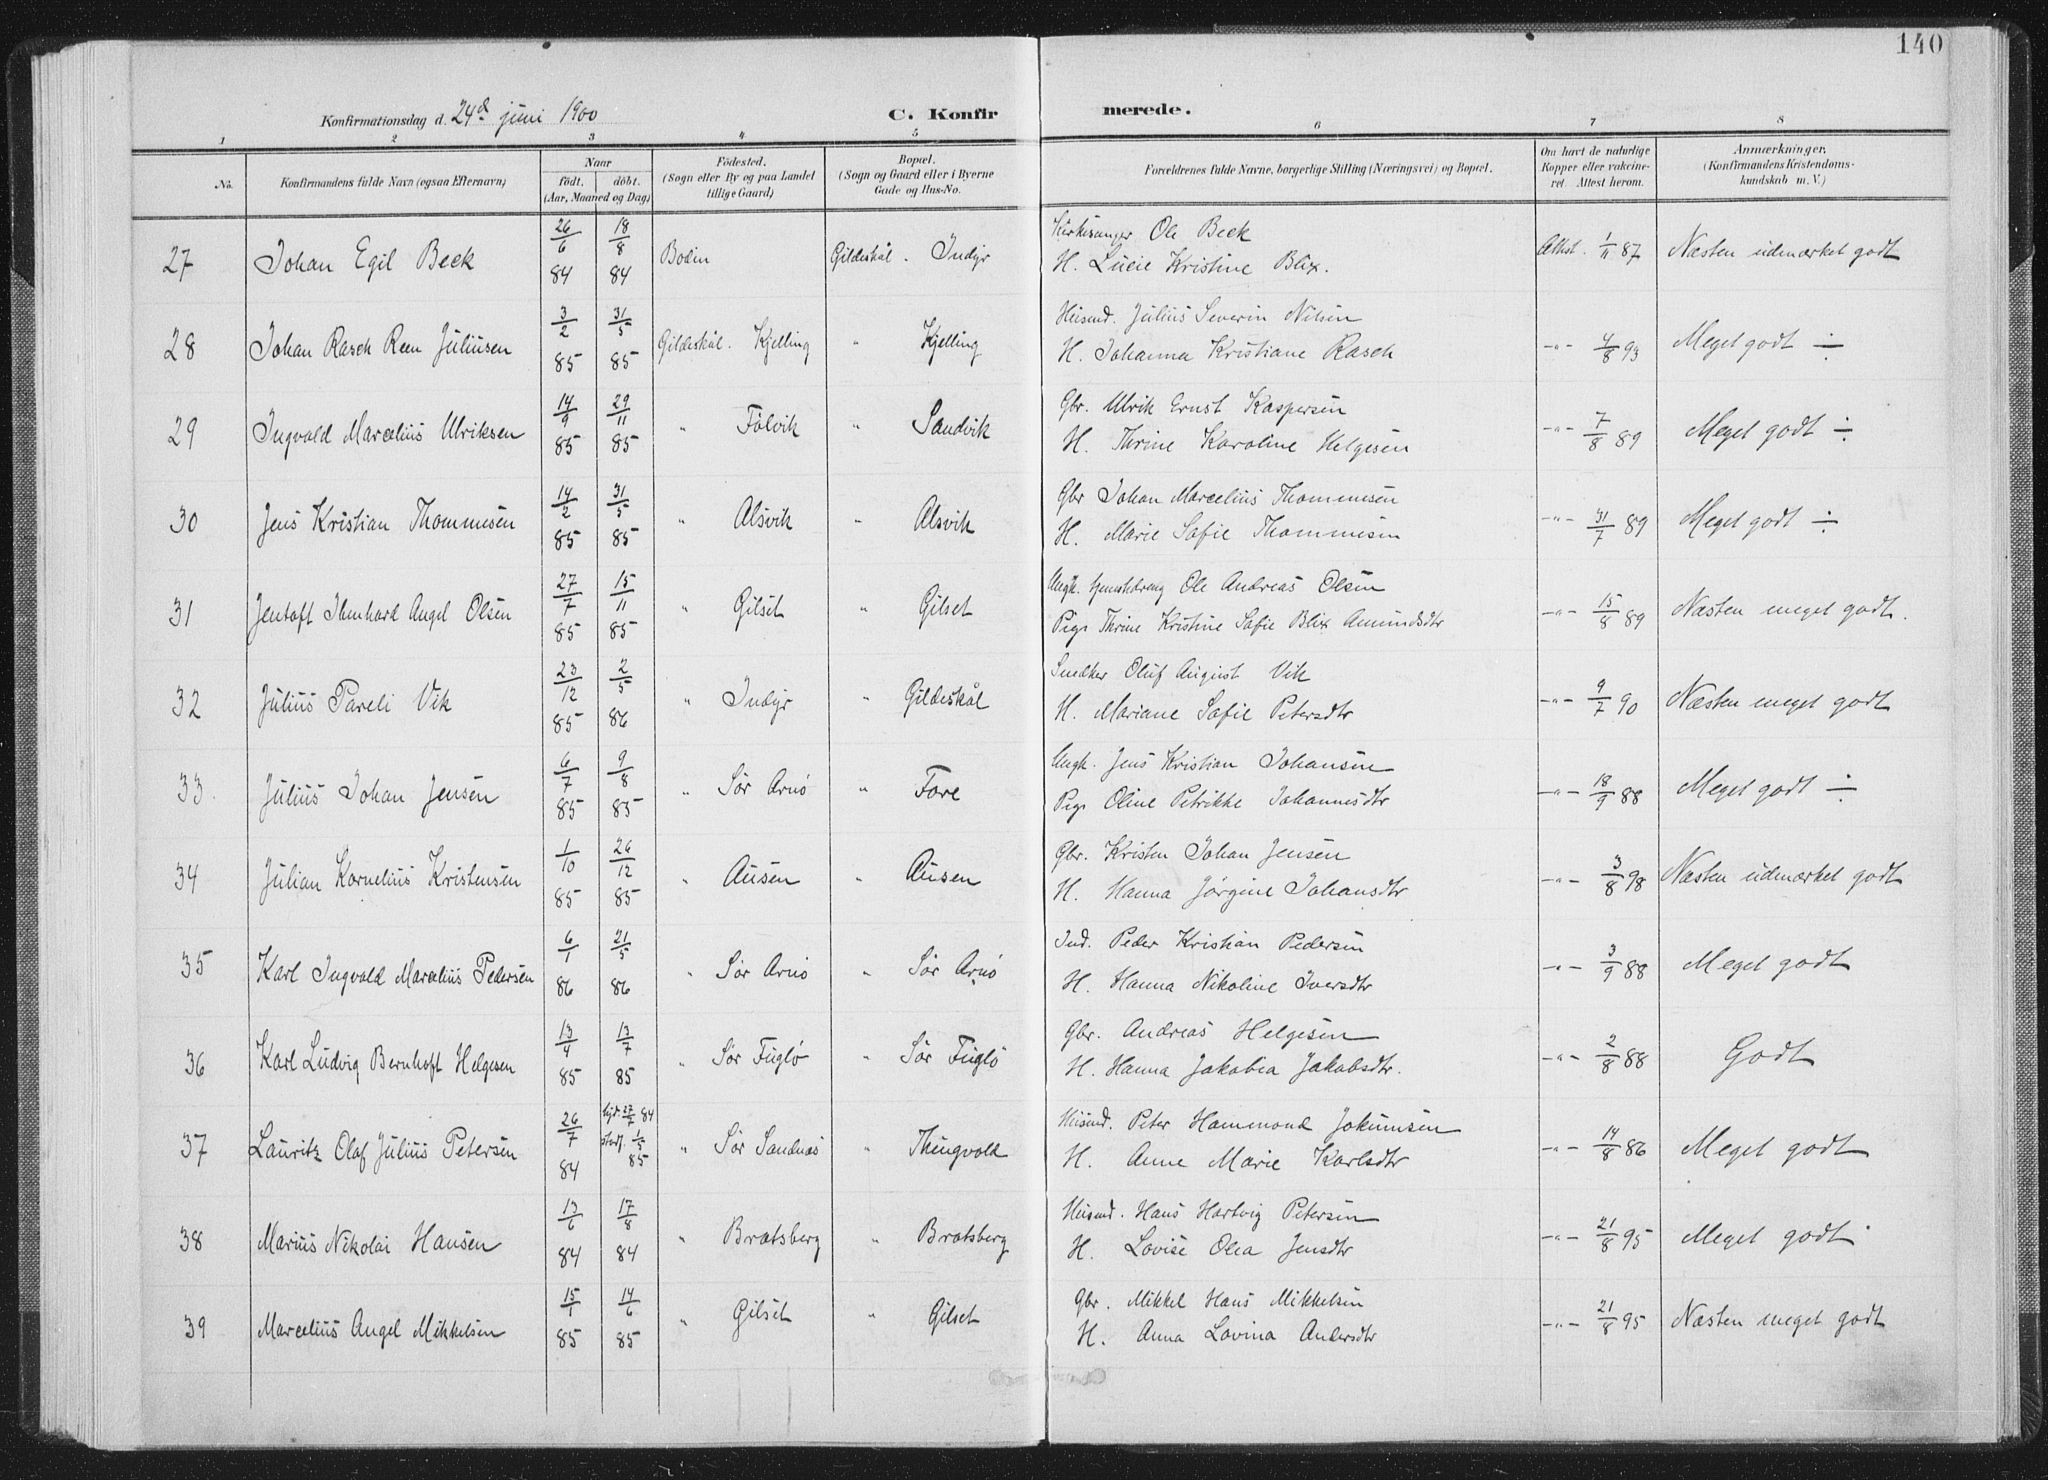 140
Konfirmationsdag d. 24de juni 1900 C. Konfirmerede.
1 2 3 4 5 6 7 8
No. Konfirmandens fulde Navn (ogsaa Efternavn) Naar födt. döbt. (Aar, Maaned og Dag) Födested. (Sogn eller By og paa Landet tillige Gaard) Bopæl. (Sogn og Gaard eller i Byerne Gade og Hus-No. Forældrenes fulde Navne, borgerlige Stilling (Næringsvei) og Bopæl. Om havt de naturlige Kopper eller vakcineret. Attest herom. Anmærkninger. (Konfirmandens Kristendomskundskab m. V.)
27 Johan Egil Beck 26/6 84 18/8 84 Bodin Gildeskål. Indyr Kirkesanger Ole Beck
H. Lucie Kristine Blix. Attest. 1/11 87 Næsten udmærket godt
28 Johan Rasch Reen Juliusen 3/2 85 31/5 85 Gildeskål. Kjelling " Kjelling Husmd. Julius Severin Nilsen
H. Johanna Kristiane Rasch -"- 4/8 93 Meget godt ÷
29 Ingvald Marcelius Ulriksen 14/9 85 29/11 85 " Fölvik " Sandvik Gbr. Ulrik Ernst Kaspersen
H. Thrine Karoline Helgesen -"- 7/8 89 Meget godt ÷
30 Jens Kristian Thommesen 14/2 85 31/5 85 " Alsvik " Alsvik Gbr Johan Marcelius Thommesen
H. Marie Sofie Thommesen -"- 31/7 89 Meget godt ÷
31 Jentoft Ihenhard Angel Olsen 27/7 85 15/11 85 " Gilset " Gilset Ungk. tjenestedreng Ole Andreas Olsen
Pige Thrine Kristine Sofie Blix Amundsdtr -"- 15/8 89 Næsten meget godt.
32 Julius Pareli Vik 23/12 85 2/5 86 " Indyr " Gildeskål Snedker Oluf August Vik
H. Mariane Sofie Petersdtr -"- 9/7 90 Næsten meget godt
33. Julius Johan Jensen 6/7 85 9/8 85 " Sör Arnö " Fore Ungk. Jens Kristian Johansen
Pige Oline Petrikke Johannesdtr -"- 18/9 88 Meget godt ÷
34 Julian Kornelius Kristensen 1/10 85 26/12 85 " Ausen " Ausen Gbr. Kristen Johan Jensen
H. Hanna Jørgine Johansdtr -"- 3/8 98 Næsten udmærket godt
35 Karl Ingvald Marcelius Pedersen 6/1 86 21/5 86 " Sör Arnö " Sör Arnö Ind. Peder Kristian Pedersen
H. Hanna Nikoline Iversdtr -"- 3/9 88 Meget godt
36 Karl Ludvig Bernhoft Helgesen 13/4 85 13/7 85 " Sör Fuglö " Sör Fuglö Gbr. Andreas Helgesen
H. Hanna Jakobia Jakobsdtr. -"- 2/8 88 Godt
37 Lauritz Olaf Julius Petersen 26/7 84 hjd. 27/7 84 stadf. 1/5 85 " Sör Sandnæs " Thingvold Husmd. Peter Hammond Jokumsen
H. Anne Marie Karlsdtr -"- 14/8 86 Meget godt
38 Marius Nikolai Hansen 13/6 84 17/8 84 " Bratsberg " Bratsberg Husmd. Hans Hartvig Petersen
H. Lovise Olea Jensdtr -"- 21/8 95 Meget godt
39 Marcelius Angel Mikkelsen 15/1 85 14/6 85 " Gilset " Gilset Gbr. Mikkel Hans Mikkelsen
H. Anna Lovina Andersdtr -"- 21/8 95 Næsten meget godt